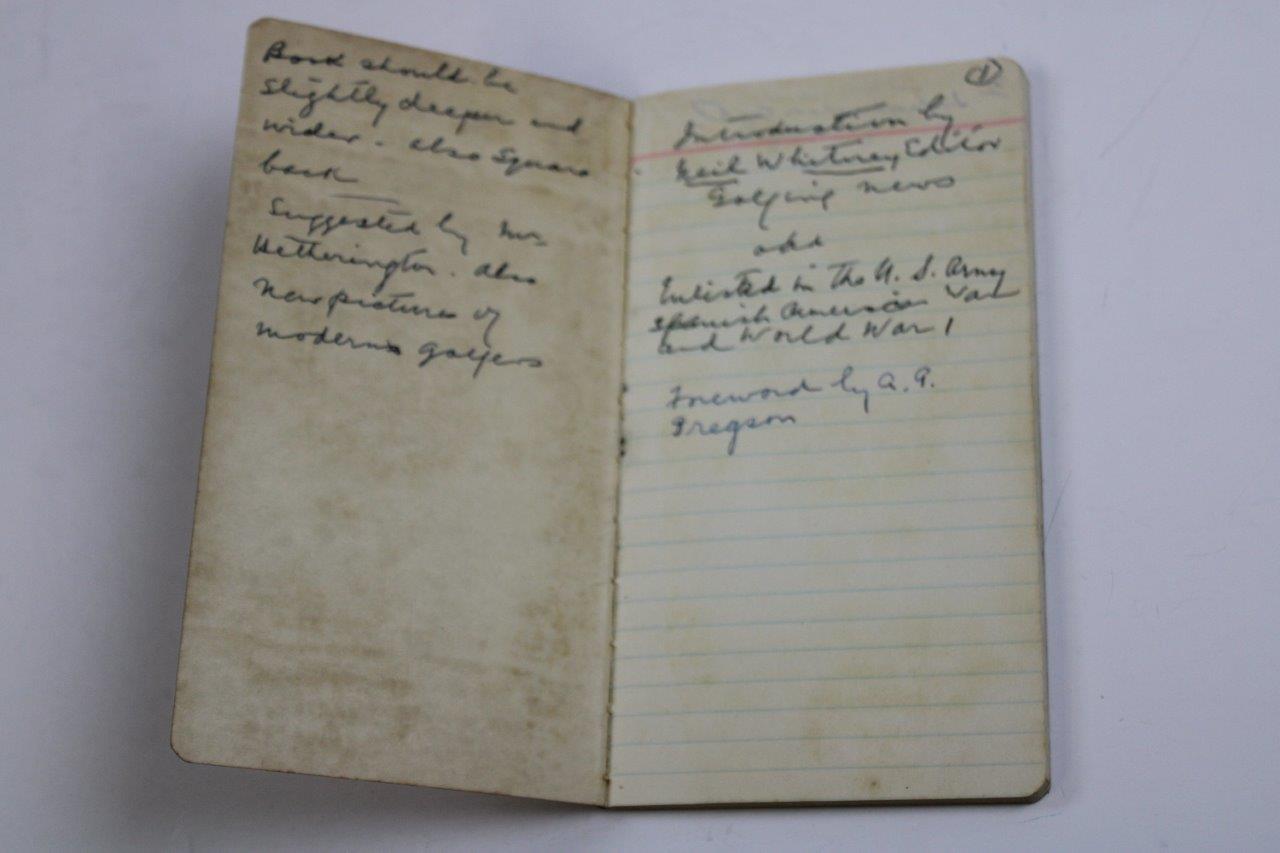 Book should be
slightly deeper and
wider. also Square
back
Suggested by Mr.
Hetherington. also
New pictures of
modern golfers
1
Introduction by
Whitney Editor
Golfing news
add
Enlisted in the U. S. Army
Spanish American War
and World War 1
Foreword by A. A.